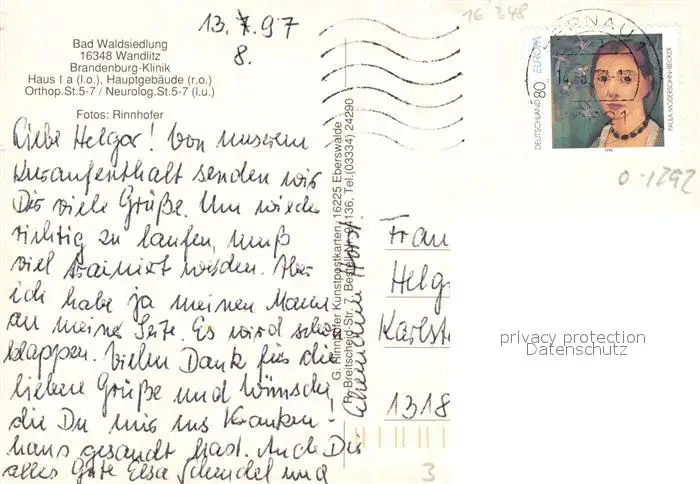 13. 7. 97
8.
16 348
Bad Waldsiedlung
16348 Wandlitz
Brandenburg-Klinik
Haus I a (l.o.), Hauptgebäude (r.o.)
Orthop.St.5-7 / Neurolog.St.5-7 (l.u.)
Fotos: Rinnhofer
Liebe Helga! Von unserem
Kuraufenthalt senden wir
Dir viele Grüße. Um wieder
richtig zu laufen, muß
viel trainirt werden. Aber
ich habe ja meinen Mann
an meiner Seite. Es wird schon
klappen. Vielen Dank für die
lieben Grüße und Wünsche,
die Du mir ins Kranken-
haus gesandt hast. Auch Dir
alles Gute Elsa Schendel und
Ehemann Horst.
G. Rinnhofer Kunstpostkarten, 16225 Eberswalde
R.-Breitscheid-Str. 7, Bestell-Nr. 04136, Tel.(03334) 24290
BERNAU
DEUTSCHLAND 80 EUROPA
PAULA MODERSOHN-BECKER
1996
0-1292
Frau
Helg
Karlst
1318
3
privacy protection
Datenschutz